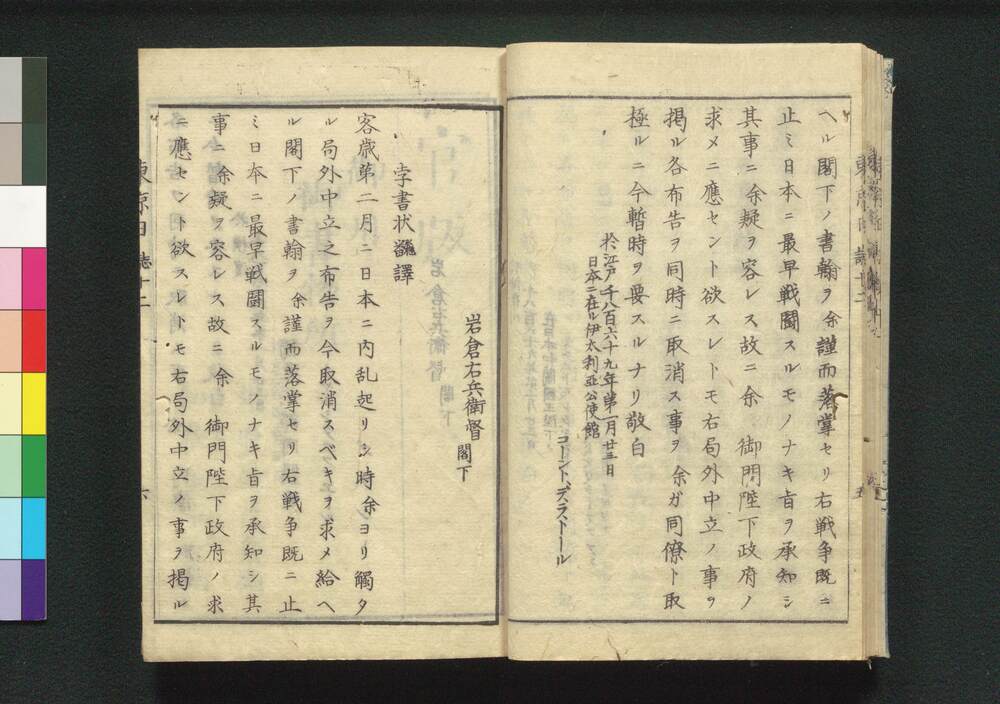 ヘル閣下ノ書翰ヲ余謹而落掌セリ右戦争既ニ
止ミ日本ニ最早戦鬪スルモノナキ旨ヲ承知シ
其事ニ余疑ヲ容レス故ニ余 御門陛下政府ノ
求メニ應セント欲スレトモ右局外中立ノ事ヲ
掲ル各布告ヲ同時ニ取消ス事ヲ 余ガ同僚ト取
極ルニ今暫時ヲ要スルナリ敬白
於江戸千八百六十九年第一月廿三日
日本ニ在ル伊太利亜公使館
コーントデラストール
岩倉右兵衛督 閣下
孛書状飜譯
客歳第二月ニ日本ニ内乱起リシ時余ヨリ觸タ
ル局外中立之布告ヲ今取消スベキヲ求メ給ヘ
ル閣下ノ書翰ヲ 余謹而落掌セリ右戦争既ニ止
ミ日本ニ最早戦鬪スルモノナキ旨ヲ承知シ其
事ニ 余疑ヲ容レス故ニ 余 御門陛下政府ノ求
ニ應セント欲スレトモ右局外中立ノ事ヲ掲ル
東京日誌十二
六